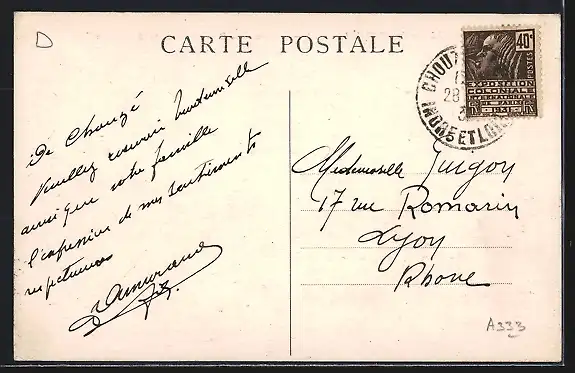 D
CARTE POSTALE
40c
POSTES
EXPOSITION
COLONIALE
INTERNATIONALE
PARIS
1931
CHOUZ
28
INDRE ET LOIRE
De Chouzé
Veuillez recevoir Mademoiselle
ainsi que votre famille
l'expression de mes sentiments
respectueux
Mademoiselle Guigon
17 rue Romarin
Lyon
Rhone
A333